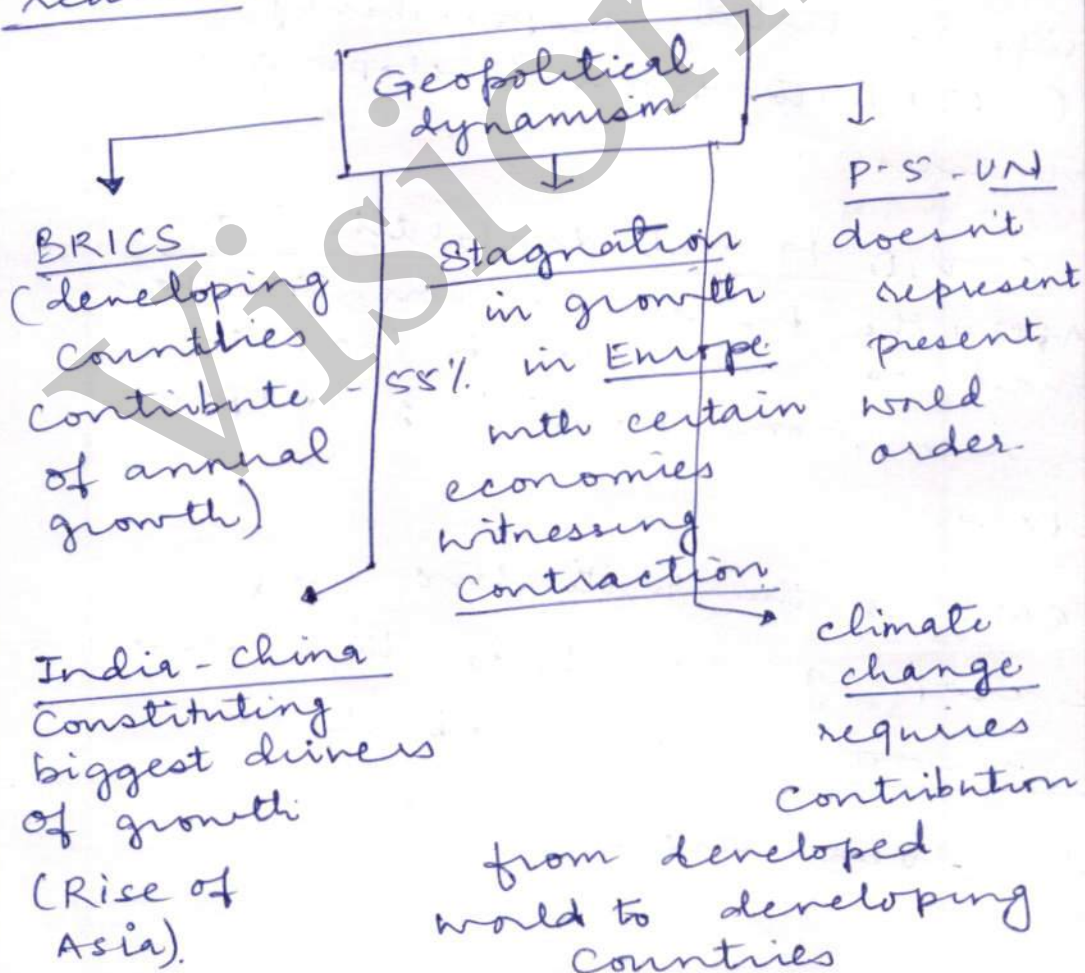 Geopolitical
dynamism
BRICS
(developing
countries
contribute - 55%
of annual
growth)
Stagnation
in growth
in Europe
with certain
economies
witnessing
contraction
P-5-UN
doesn't
represent
present
world
order.
India - China
Constituting
biggest drivers
of growth
(Rise of
Asia).
climate
change
requires
contribution
from developed
world to developing
countries
Vision